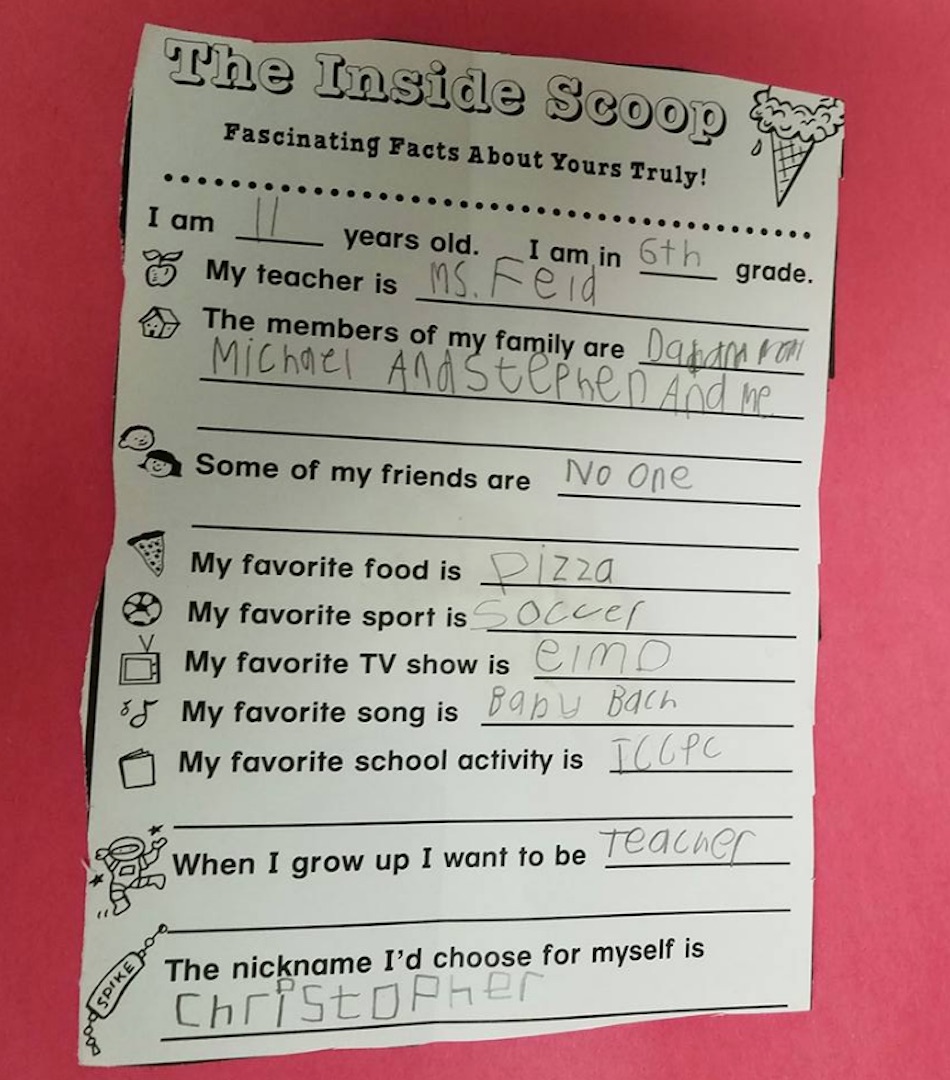 The Inside Scoop
Fascinating Facts About Yours Truly!
I am 11 years old. I am in 6th grade.
My teacher is Ms. Feld
The members of my family are mom
Michael And Stephen And me
Some of my friends are No one
My favorite food is pizza
My favorite sport is soccer
My favorite TV show is elmo
My favorite song is Baby Bach
My favorite school activity is
When I grow up I want to be Teacher
SPIKE
The nickname I'd choose for myself is
Christopher